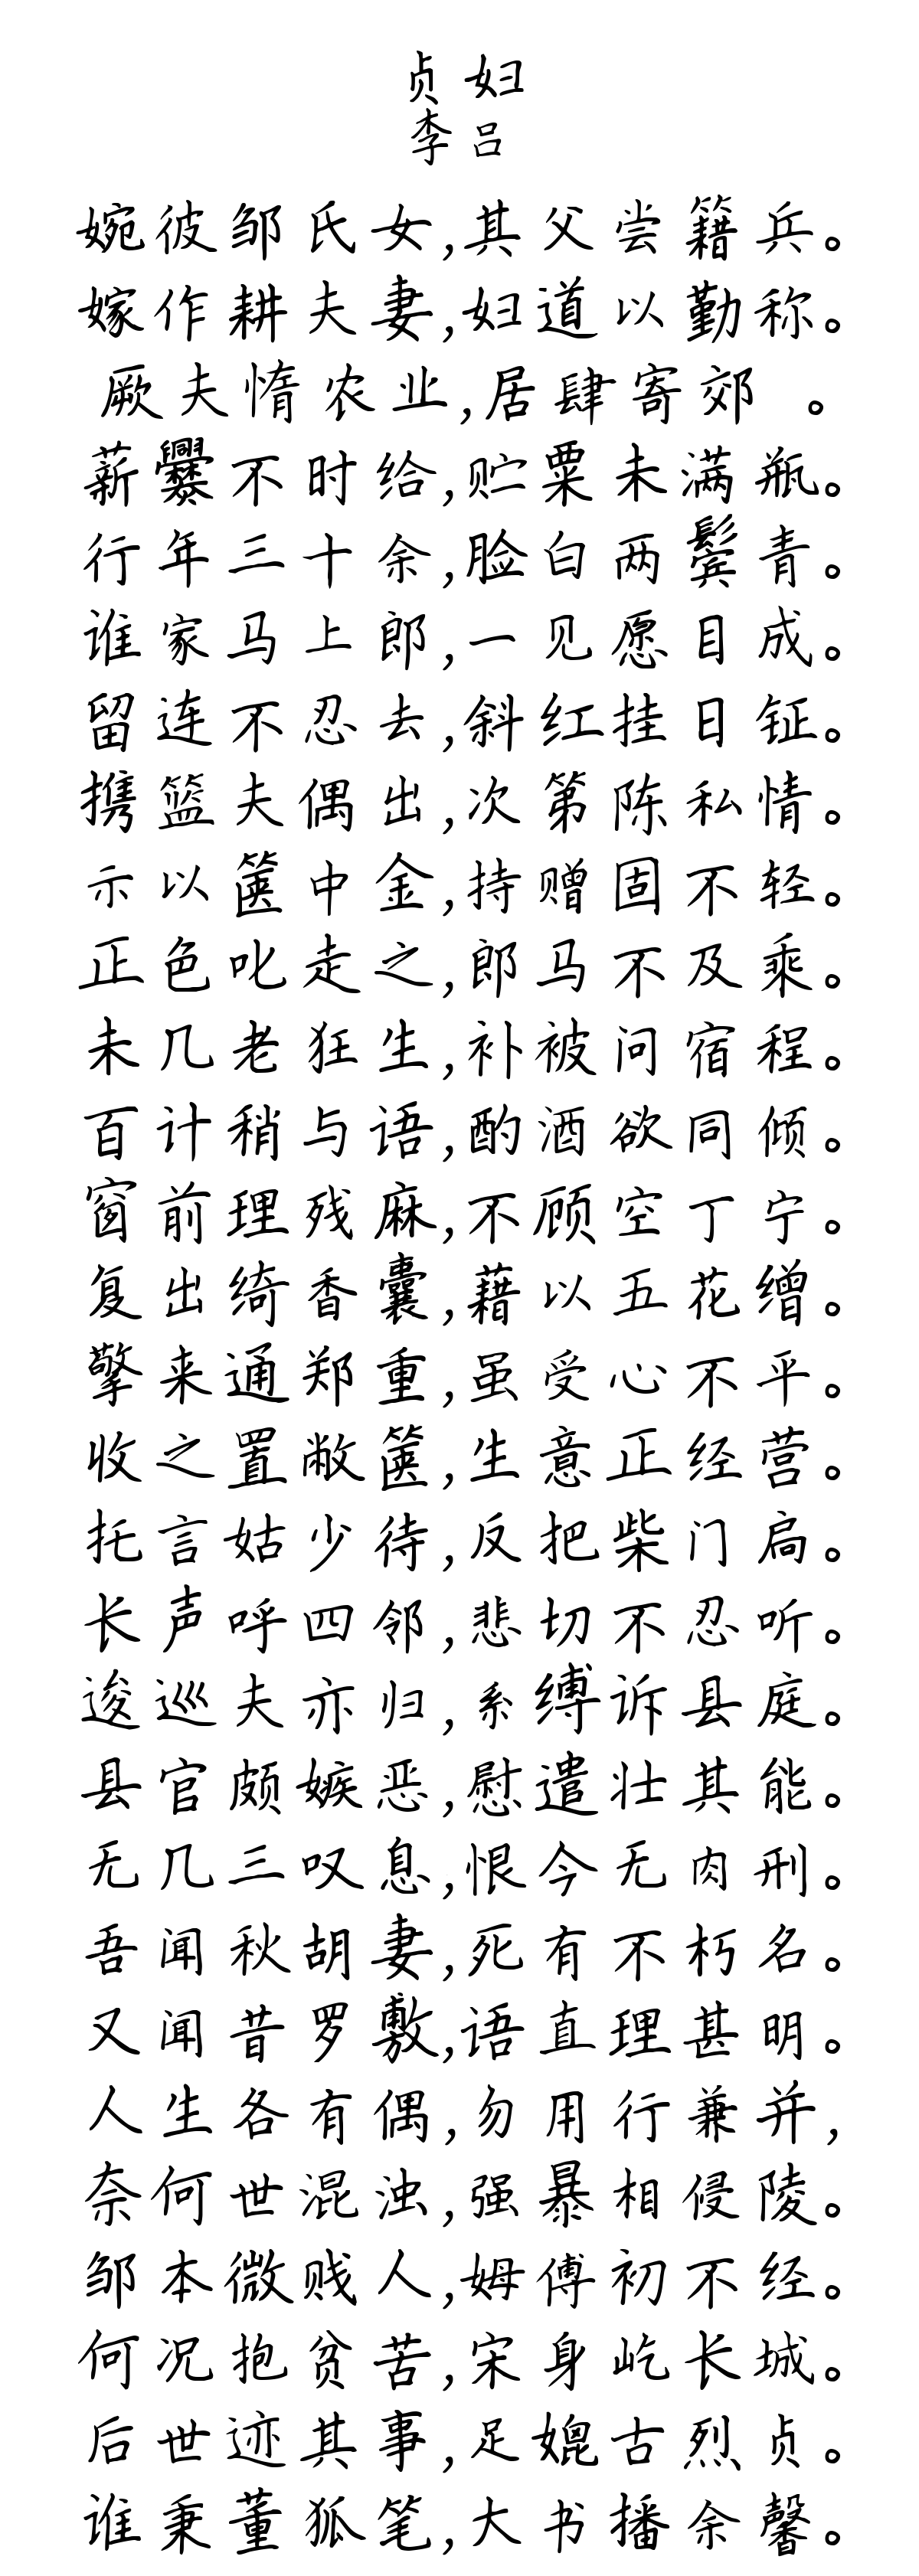 贞妇
李吕
婉彼邹氏女,其父尝籍兵。
嫁作耕夫妻,妇道以勤称。
厥夫惰农业,居肆寄郊 。
薪爨不时给,贮粟未满瓶。
行年三十余,脸白两鬓青。
谁家马上郎,一见愿目成。
留连不忍去,斜红挂日钲。
携篮夫偶出,次第陈私情。
示以箧中金,持赠固不轻。
正色叱走之,郎马不及乘。
未几老狂生,补被问宿程。
百计稍与语,酌酒欲同倾。
窗前理残麻,不顾空丁宁。
复出绮香囊,藉以五花缯。
擎来通郑重,虽受心不平。
收之置敝箧,生意正经营。
托言姑少待,反把柴门扃。
长声呼四邻,悲切不忍听。
逡巡夫亦归,系缚诉县庭。
县官颇嫉恶,慰遣壮其能。
无几三叹息,恨今无肉刑。
吾闻秋胡妻,死有不朽名。
又闻昔罗敷,语直理甚明。
人生各有偶,勿用行兼并,
奈何世混浊,强暴相侵陵。
邹本微贱人,姆傅初不经。
何况抱贫苦,宋身屹长城。
后世迹其事,足媲古烈贞。
谁秉董狐笔,大书播余馨。